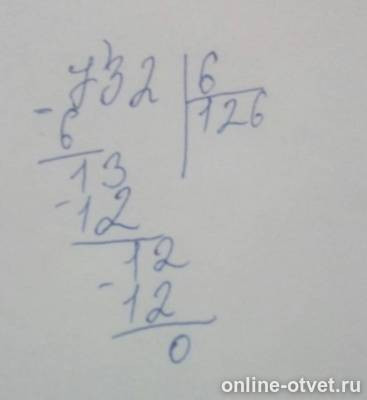 732 | 6
- 6 | 126
13
- 12
12
- 12
0
online-otvet.ru